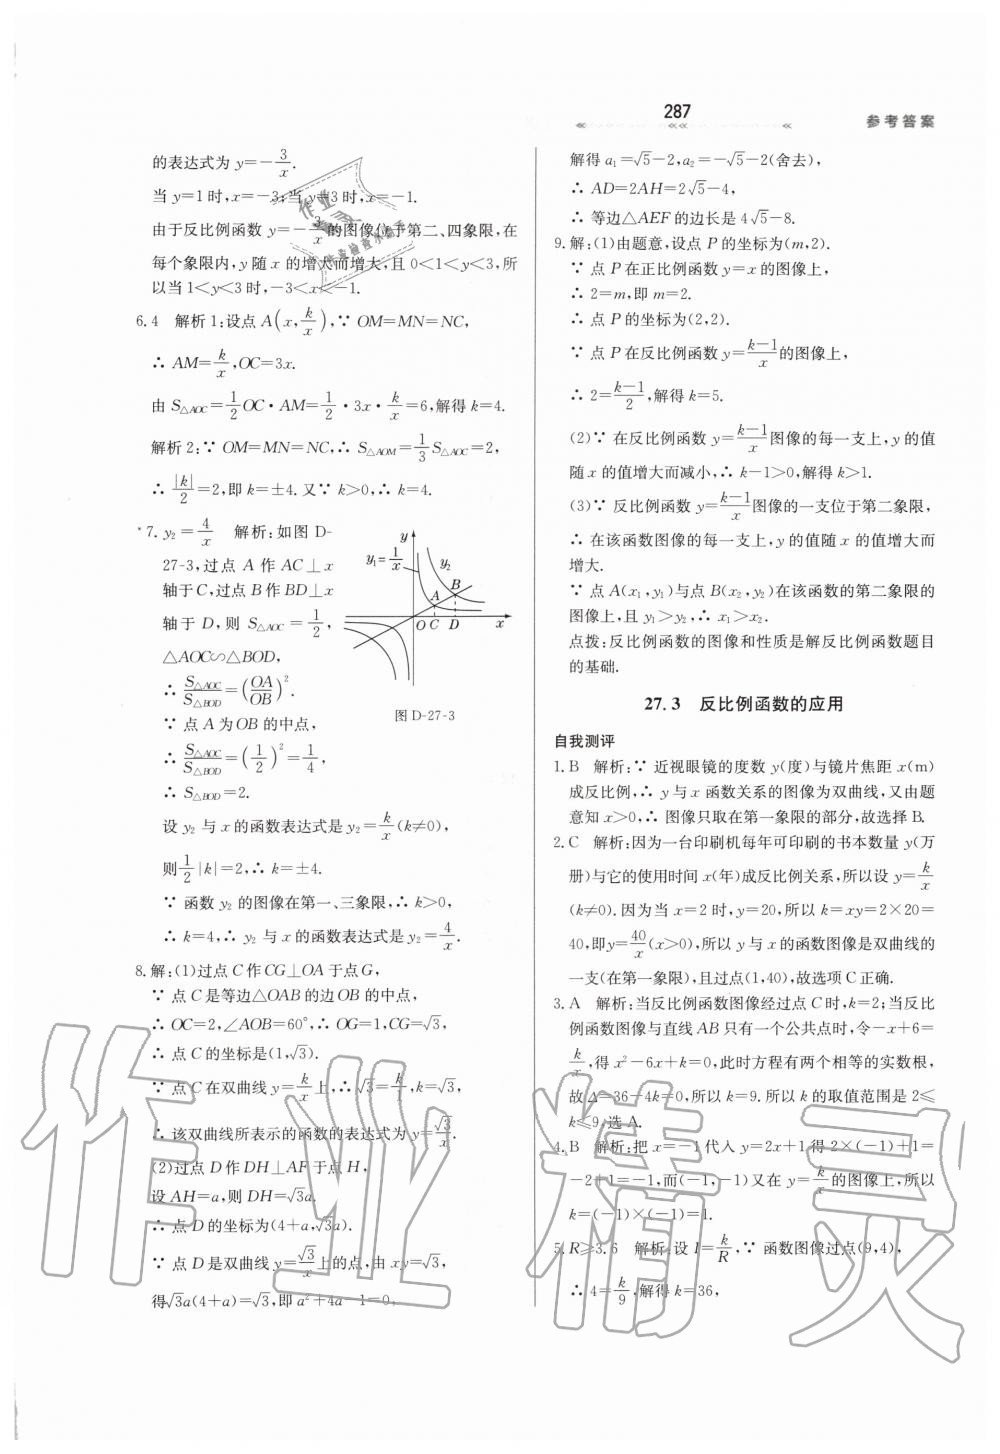 287
参考答案
的表达式为 y=-3/x.
当 y=1 时,x=-3;当 y=3 时,x=-1.
由于反比例函数 y=-3/x 的图像位于第二、四象限,在
每个象限内,y 随 x 的增大而增大,且 0<1<y<3,所
以当 1<y<3 时,-3<x<-1.
6.4 解析1:设点 A(x,k/x),∵ OM=MN=NC,
∴ AM=k/x,OC=3x.
由 S△AOC=1/2 OC·AM=1/2·3x·k/x=6,解得 k=4.
解析2:∵ OM=MN=NC,∴ S△AOM=1/3 S△AOC=2,
∴ |k|/2=2,即 k=±4. 又∵ k>0,∴ k=4.
*7. y₂=4/x 解析:如图 D-
27-3,过点 A 作 AC⊥x
轴于 C,过点 B 作 BD⊥x
轴于 D,则 S△AOC=1/2,
△AOC∽△BOD,
∴ S△AOC/S△BOD=(OA/OB)².
∵ 点 A 为 OB 的中点,
∴ S△AOC/S△BOD=(1/2)²=1/4,
∴ S△BOD=2.
y
y₁=1/x
y₂
A
B
O C D x
图 D-27-3
设 y₂ 与 x 的函数表达式是 y₂=k/x(k≠0),
则1/2|k|=2,∴ k=±4.
∵ 函数 y₂ 的图像在第一、三象限,∴ k>0,
∴ k=4,∴ y₂ 与 x 的函数表达式是 y₂=4/x.
8.解:(1)过点 C 作 CG⊥OA 于点 G,
∵ 点 C 是等边△OAB 的边 OB 的中点,
∴ OC=2,∠AOB=60°,∴ OG=1,CG=√3,
∴ 点 C 的坐标是(1,√3).
∵ 点 C 在双曲线 y=k/x 上,∴ √3=k/1,k=√3,
∴ 该双曲线所表示的函数的表达式为 y=√3/x.
(2)过点 D 作 DH⊥AF 于点 H,
设 AH=a,则 DH=√3a.
∴ 点 D 的坐标为(4+a,√3a).
∵ 点 D 是双曲线 y=√3/x 上的点,由 xy=√3,
得√3a(4+a)=√3,即 a²+4a-1=0,
解得 a₁=√5-2,a₂=-√5-2(舍去),
∴ AD=2AH=2√5-4,
∴ 等边△AEF 的边长是 4√5-8.
9.解:(1)由题意,设点 P 的坐标为(m,2).
∵ 点 P 在正比例函数 y=x 的图像上,
∴ 2=m,即 m=2.
∴ 点 P 的坐标为(2,2).
∵ 点 P 在反比例函数 y=k-1/x 的图像上,
∴ 2=k-1/2,解得 k=5.
(2)∵ 在反比例函数 y=k-1/x 图像的每一支上,y 的值
随 x 的值增大而减小,∴ k-1>0,解得 k>1.
(3)∵ 反比例函数 y=k-1/x 图像的一支位于第二象限,
∴ 在该函数图像的每一支上,y 的值随 x 的值增大而
增大.
∵ 点 A(x₁,y₁)与点 B(x₂,y₂)在该函数的第二象限的
图像上,且 y₁>y₂,∴ x₁>x₂.
点拨:反比例函数的图像和性质是解反比例函数题目
的基础.
27.3 反比例函数的应用
自我测评
1.B 解析:∵ 近视眼镜的度数 y(度)与镜片焦距 x(m)
成反比例,∴ y 与 x 函数关系的图像为双曲线,又由题
意知 x>0,∴ 图像只取在第一象限的部分,故选择 B.
2.C 解析:因为一台印刷机每年可印刷的书本数量 y(万
册)与它的使用时间 x(年)成反比例关系,所以设 y=k/x
(k≠0).因为当 x=2 时,y=20,所以 k=xy=2×20=
40,即y=40/x(x>0),所以 y 与 x 的函数图像是双曲线的
一支(在第一象限),且过点(1,40),故选项 C 正确.
3.A 解析:当反比例函数图像经过点 C 时,k=2;当反比
例函数图像与直线 AB 只有一个公共点时,令-x+6=
k/x,得 x²-6x+k=0,此时方程有两个相等的实数根,
故 Δ=36-4k=0,所以 k=9.所以 k 的取值范围是 2≤
k≤9.选 A.
4.B 解析:把 x=-1 代入 y=2x+1 得 2×(-1)+1=
-2+1=-1,而(-1,-1)又在 y=k/x 的图像上,所以
k=(-1)×(-1)=1.
5.R≥3.6 解析:设 I=k/R,∵ 函数图像过点(9,4),
∴ 4=k/9,解得 k=36,
作业精灵